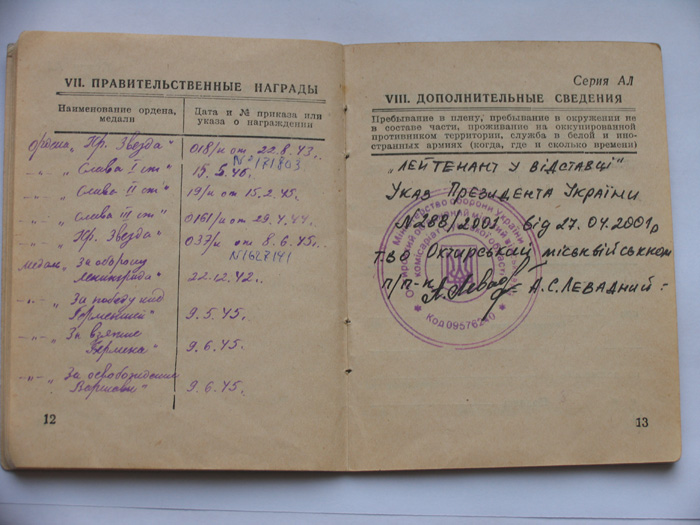 VII. ПРАВИТЕЛЬСТВЕННЫЕ НАГРАДЫ
Наименование ордена, медали
Дата и № приказа или указа о награждении
ордена „Кр. Звезда" 018/н от 22.8.43г.
№171803
—„— „Слава I ст" 15.5.46г.
—„— „Слава II ст" 19/н от 15.2.45г.
—„— „Слава III ст" 0161/н от 29.4.44г.
„ „Кр. Звезда" 037/н от 8.6.45г.
№1628141
медаль „За оборону
Ленинграда" 22.12.42г.
—„— „За победу над
Германией" 9.5.45г.
—„— „За взятие
Берлина" 9.6.45г.
—„— „За освобождение
Варшавы" 9.6.45г.
12
Серия АЛ
VIII. ДОПОЛНИТЕЛЬНЫЕ СВЕДЕНИЯ
Пребывание в плену, пребывание в окружении не
в составе части, проживание на оккупированной
противником территории, служба в белой и ино-
странных армиях (когда, где и сколько времени)
„ЛЕЙТЕНАНТ У ВІДСТАВЦІ"
Указ Президента України
№288/2001 від 27.04.2001р
ТВО Охтирський міськвійськком
п/п-к А.С.ЛЕВАДНИЙ
Міністерство оборони України
Код 09576240
13